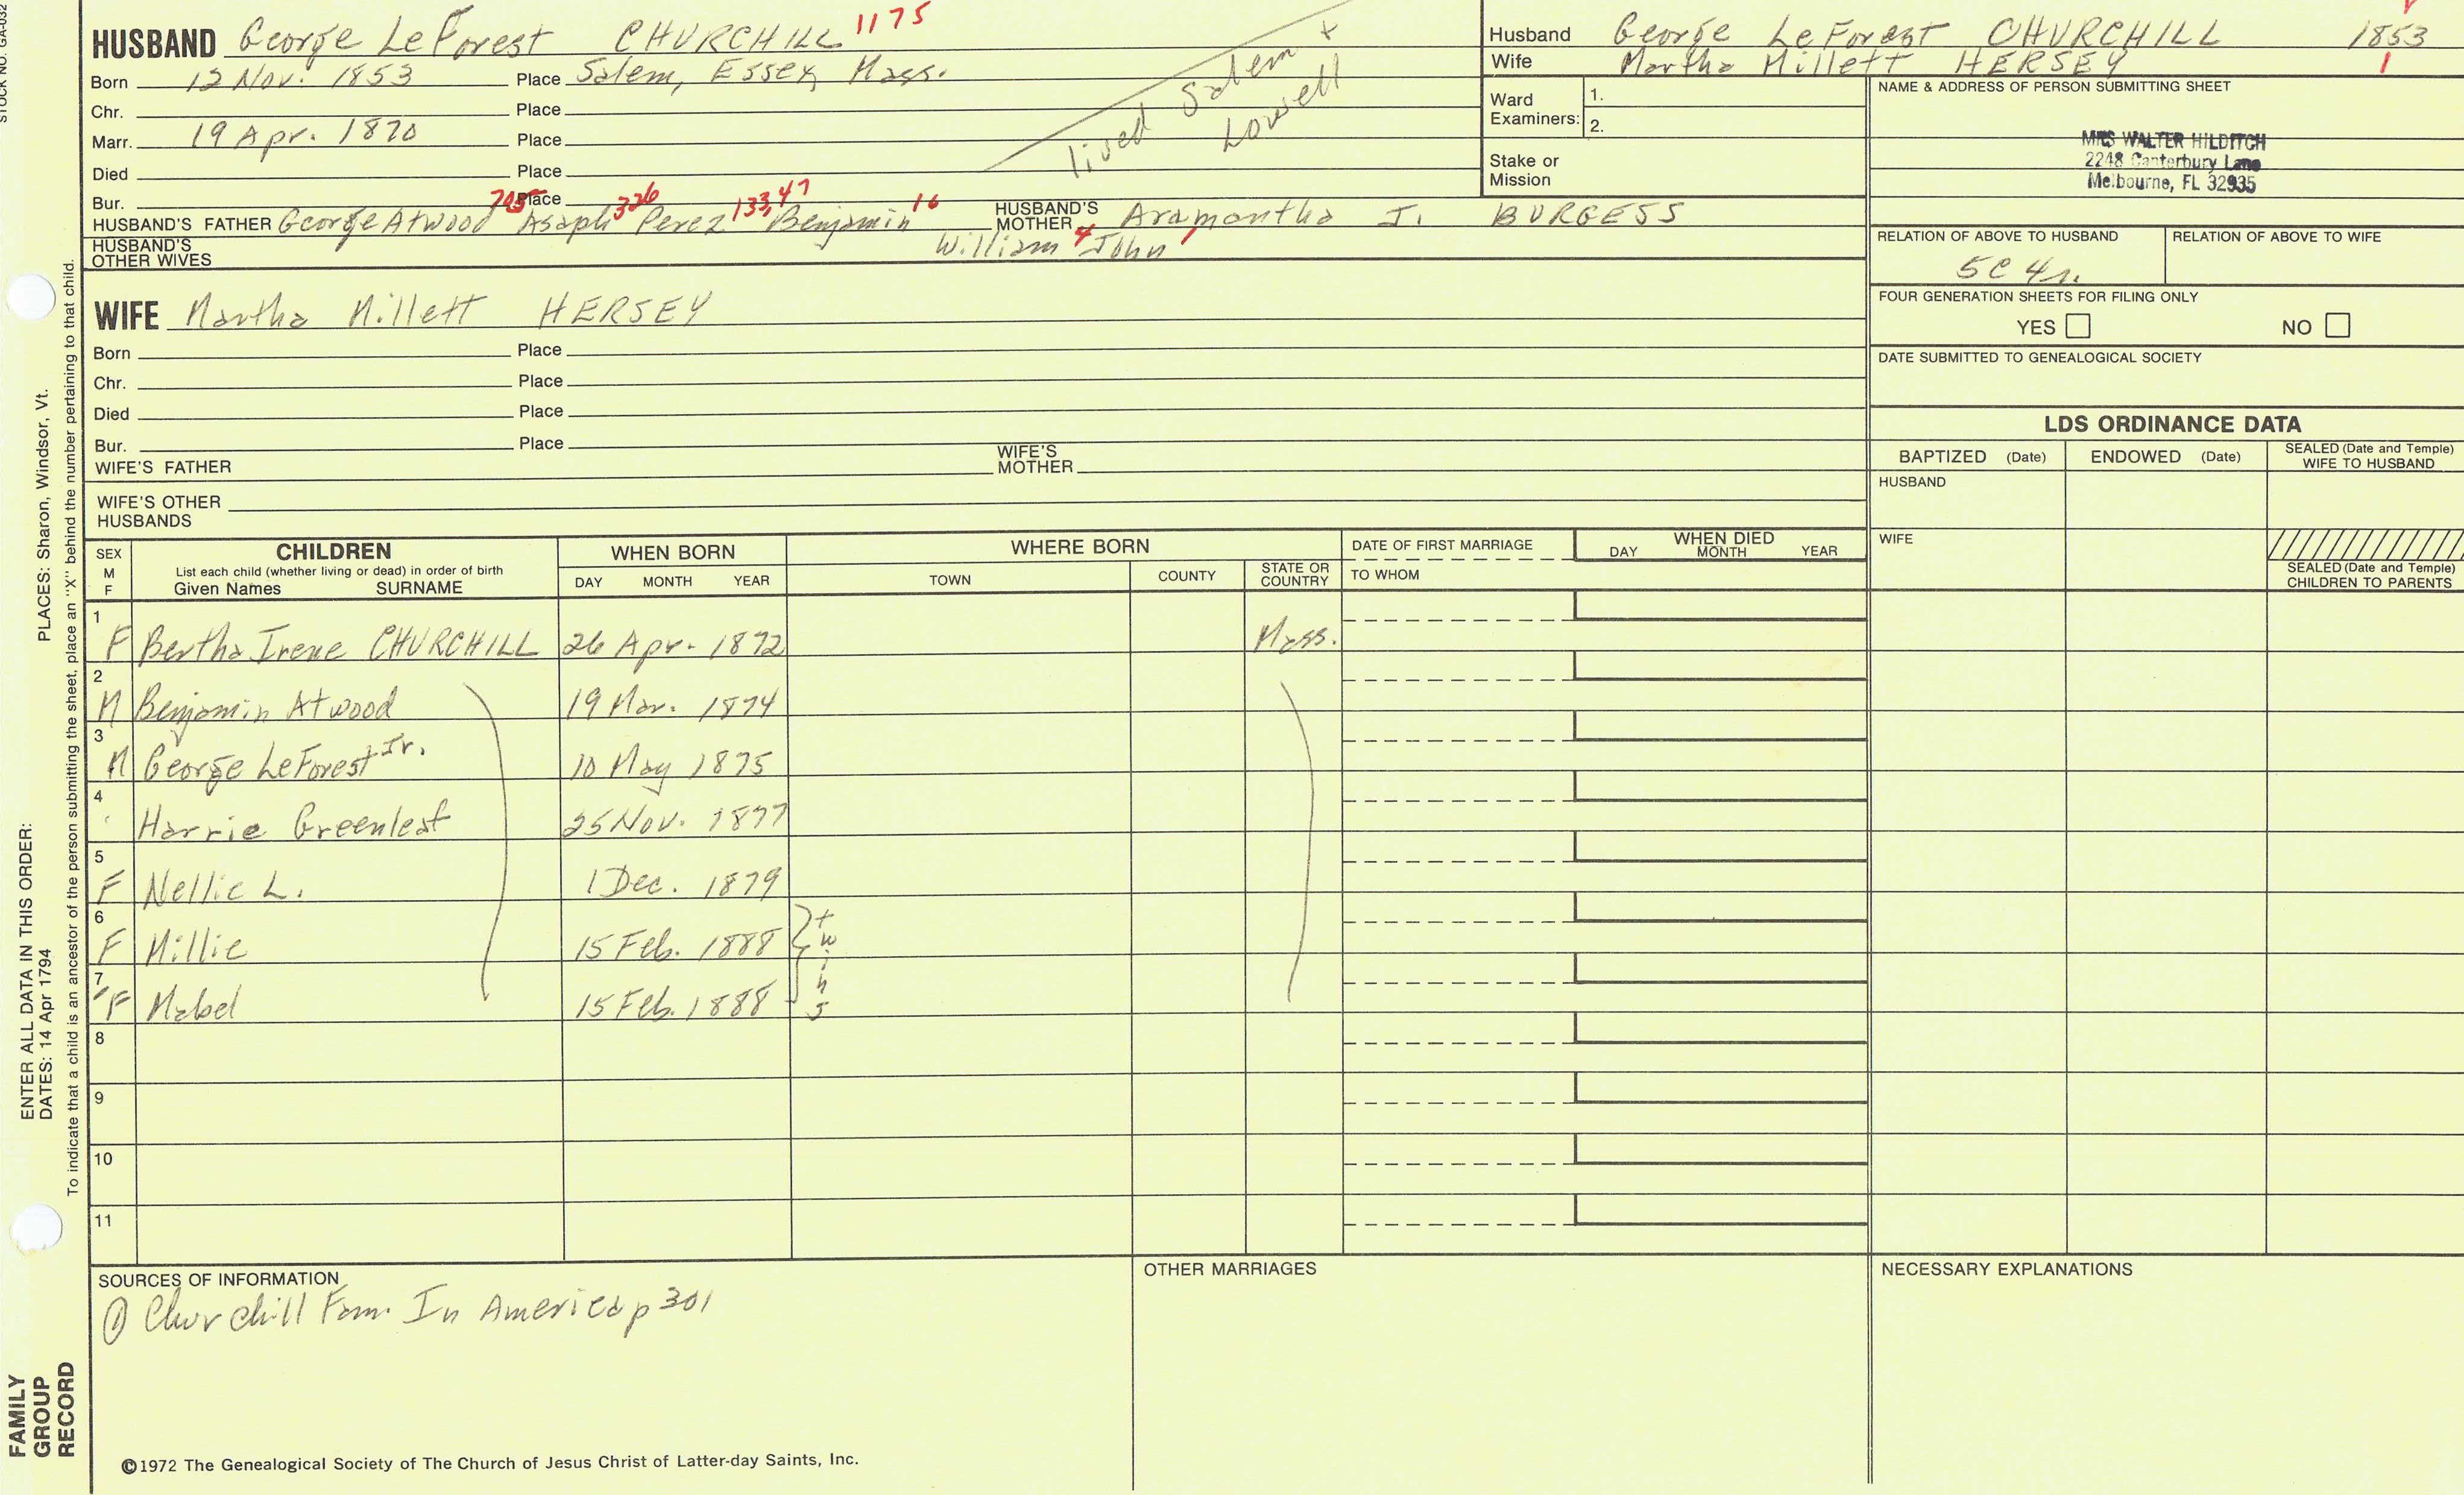 HUSBAND George LeForest CHURCHILL 1175
Born 12 Nov. 1853 Place Salem, Essex, Mass.
Chr. Place
Marr. 19 Apr. 1870 Place
Died Place
Bur. Place
lived Salem +
Lowell
HUSBAND'S FATHER George Atwood 705 Asaph 326 Perez 133,47 Benjamin 16 William 4 John 1
HUSBAND'S MOTHER Aramantha J. BURGESS
HUSBAND'S OTHER WIVES
Husband George LeForest CHURCHILL 1853
Wife Martha Millett HERSEY 1
Ward Examiners: 1.
2.
Stake or Mission
NAME & ADDRESS OF PERSON SUBMITTING SHEET
MRS WALTER HILDITCH
2248 Canterbury Lane
Melbourne, FL 32935
RELATION OF ABOVE TO HUSBAND RELATION OF ABOVE TO WIFE
5C 4r.
FOUR GENERATION SHEETS FOR FILING ONLY
YES NO
DATE SUBMITTED TO GENEALOGICAL SOCIETY
WIFE Martha Millett HERSEY
Born Place
Chr. Place
Died Place
Bur. Place
WIFE'S FATHER WIFE'S MOTHER
WIFE'S OTHER HUSBANDS
LDS ORDINANCE DATA
BAPTIZED (Date) ENDOWED (Date) SEALED (Date and Temple) WIFE TO HUSBAND
HUSBAND
WIFE
SEALED (Date and Temple) CHILDREN TO PARENTS
SEX M F
CHILDREN
List each child (whether living or dead) in order of birth
Given Names SURNAME
WHEN BORN
DAY MONTH YEAR
WHERE BORN
TOWN COUNTY STATE OR COUNTRY
DATE OF FIRST MARRIAGE
TO WHOM
WHEN DIED
DAY MONTH YEAR
1 F Bertha Irene CHURCHILL 26 Apr. 1872 Mass.
2 M Benjamin Atwood 19 Mar. 1874
3 M George LeForest Jr. 10 May 1875
4 Harrie Greenleaf 25 Nov. 1877
5 F Nellie L. 1 Dec. 1879
6 F Millie 15 Feb. 1888 twins
7 F Mabel 15 Feb. 1888
8
9
10
11
SOURCES OF INFORMATION
① Churchill Fam. In America p 301
OTHER MARRIAGES
NECESSARY EXPLANATIONS
©1972 The Genealogical Society of The Church of Jesus Christ of Latter-day Saints, Inc.
STOCK NO. GA-032
ENTER ALL DATA IN THIS ORDER: PLACES: Sharon, Windsor, Vt.
DATES: 14 Apr 1794
To indicate that a child is an ancestor of the person submitting the sheet, place an "X" behind the number pertaining to that child.
FAMILY
GROUP
RECORD